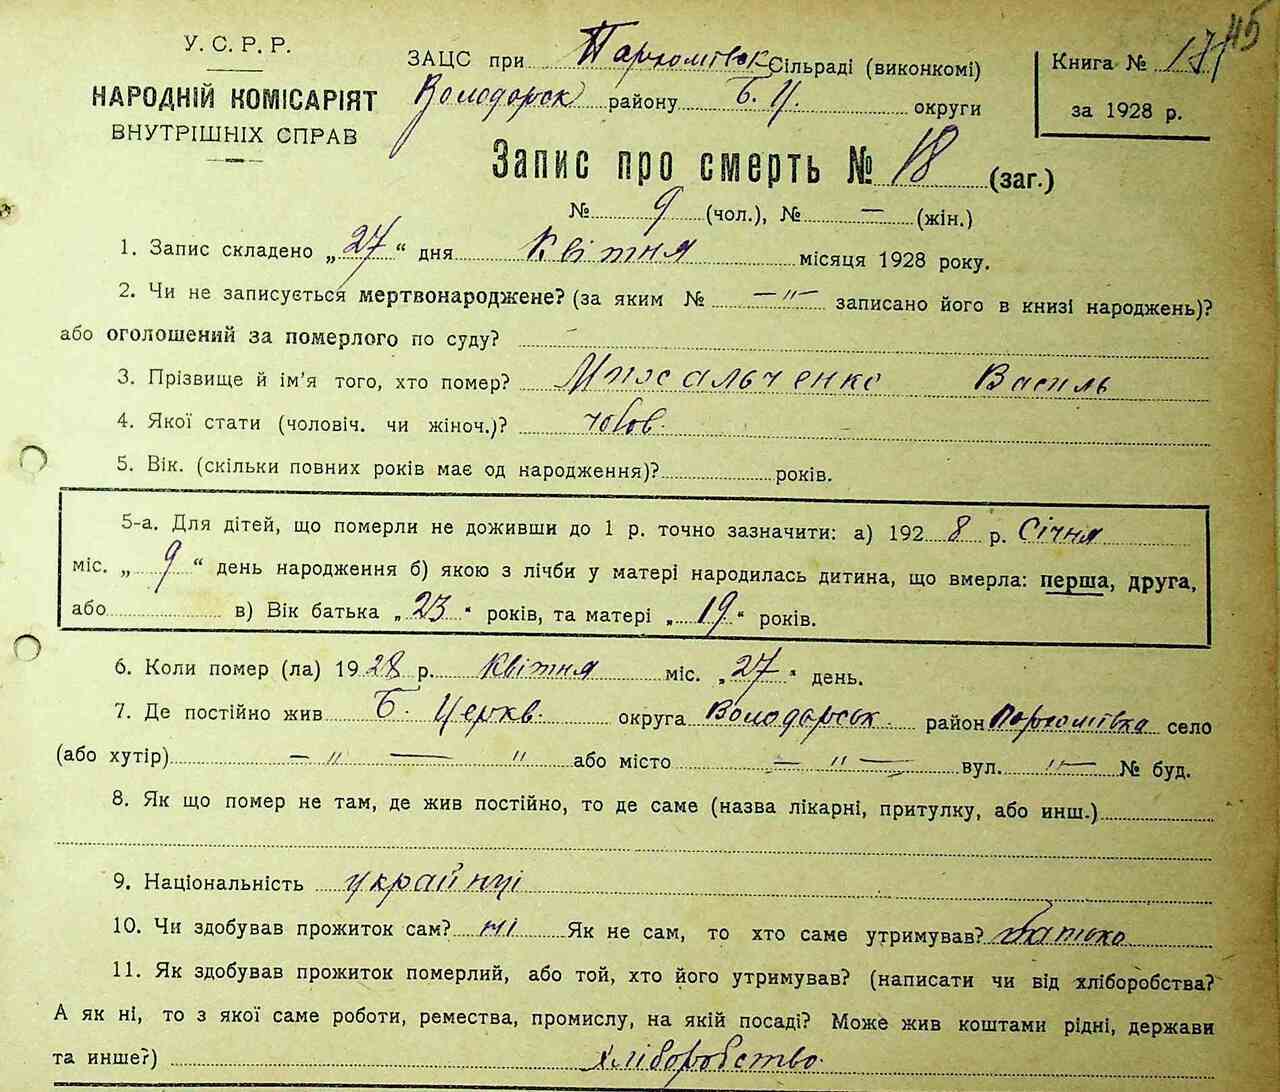 45
У. С. Р. Р.
НАРОДНІЙ КОМІСАРІЯТ
ВНУТРІШНІХ СПРАВ
ЗАЦС при Пархомівск Сільраді (виконкомі)
Володарск району Б. Ц. округи
Книга № 17
за 1928 р.
Запис про смерть № 18 (заг.)
№ 9 (чол.), № — (жін.)
1. Запис складено „27“ дня Квітня місяця 1928 року.
2. Чи не записується мертвонароджене? (за яким № —"— записано його в книзі народжень)?
або оголошений за померлого по суду?
3. Прізвище й ім'я того, хто помер? Василь
4. Якої стати (чоловіч. чи жіноч.)? чолов.
5. Вік. (скільки повних років має од народження)? років.
5-а. Для дітей, що померли не доживши до 1 р. точно зазначити: а) 1928 р. Січня
міс. „9“ день народження б) якою з лічби у матері народилась дитина, що вмерла: перша, друга,
або в) Вік батька „23“ років, та матері „19“ років.
6. Коли помер (ла) 1928 р. Квітня міс. „27“ день.
7. Де постійно жив Б. Церкв. округа Володарськ. район Пархомівка село
(або хутір) — " — " або місто — " — вул. "— № буд.
8. Як що помер не там, де жив постійно, то де саме (назва лікарні, притулку, або инш.)
9. Національність українці
10. Чи здобував прожиток сам? ні Як не сам, то хто саме утримував? батько
11. Як здобував прожиток померлий, або той, хто його утримував? (написати чи від хліборобства?
А як ні, то з якої саме роботи, ремества, промислу, на якій посаді? Може жив коштами рідні, держави
та инше?) хліборобство